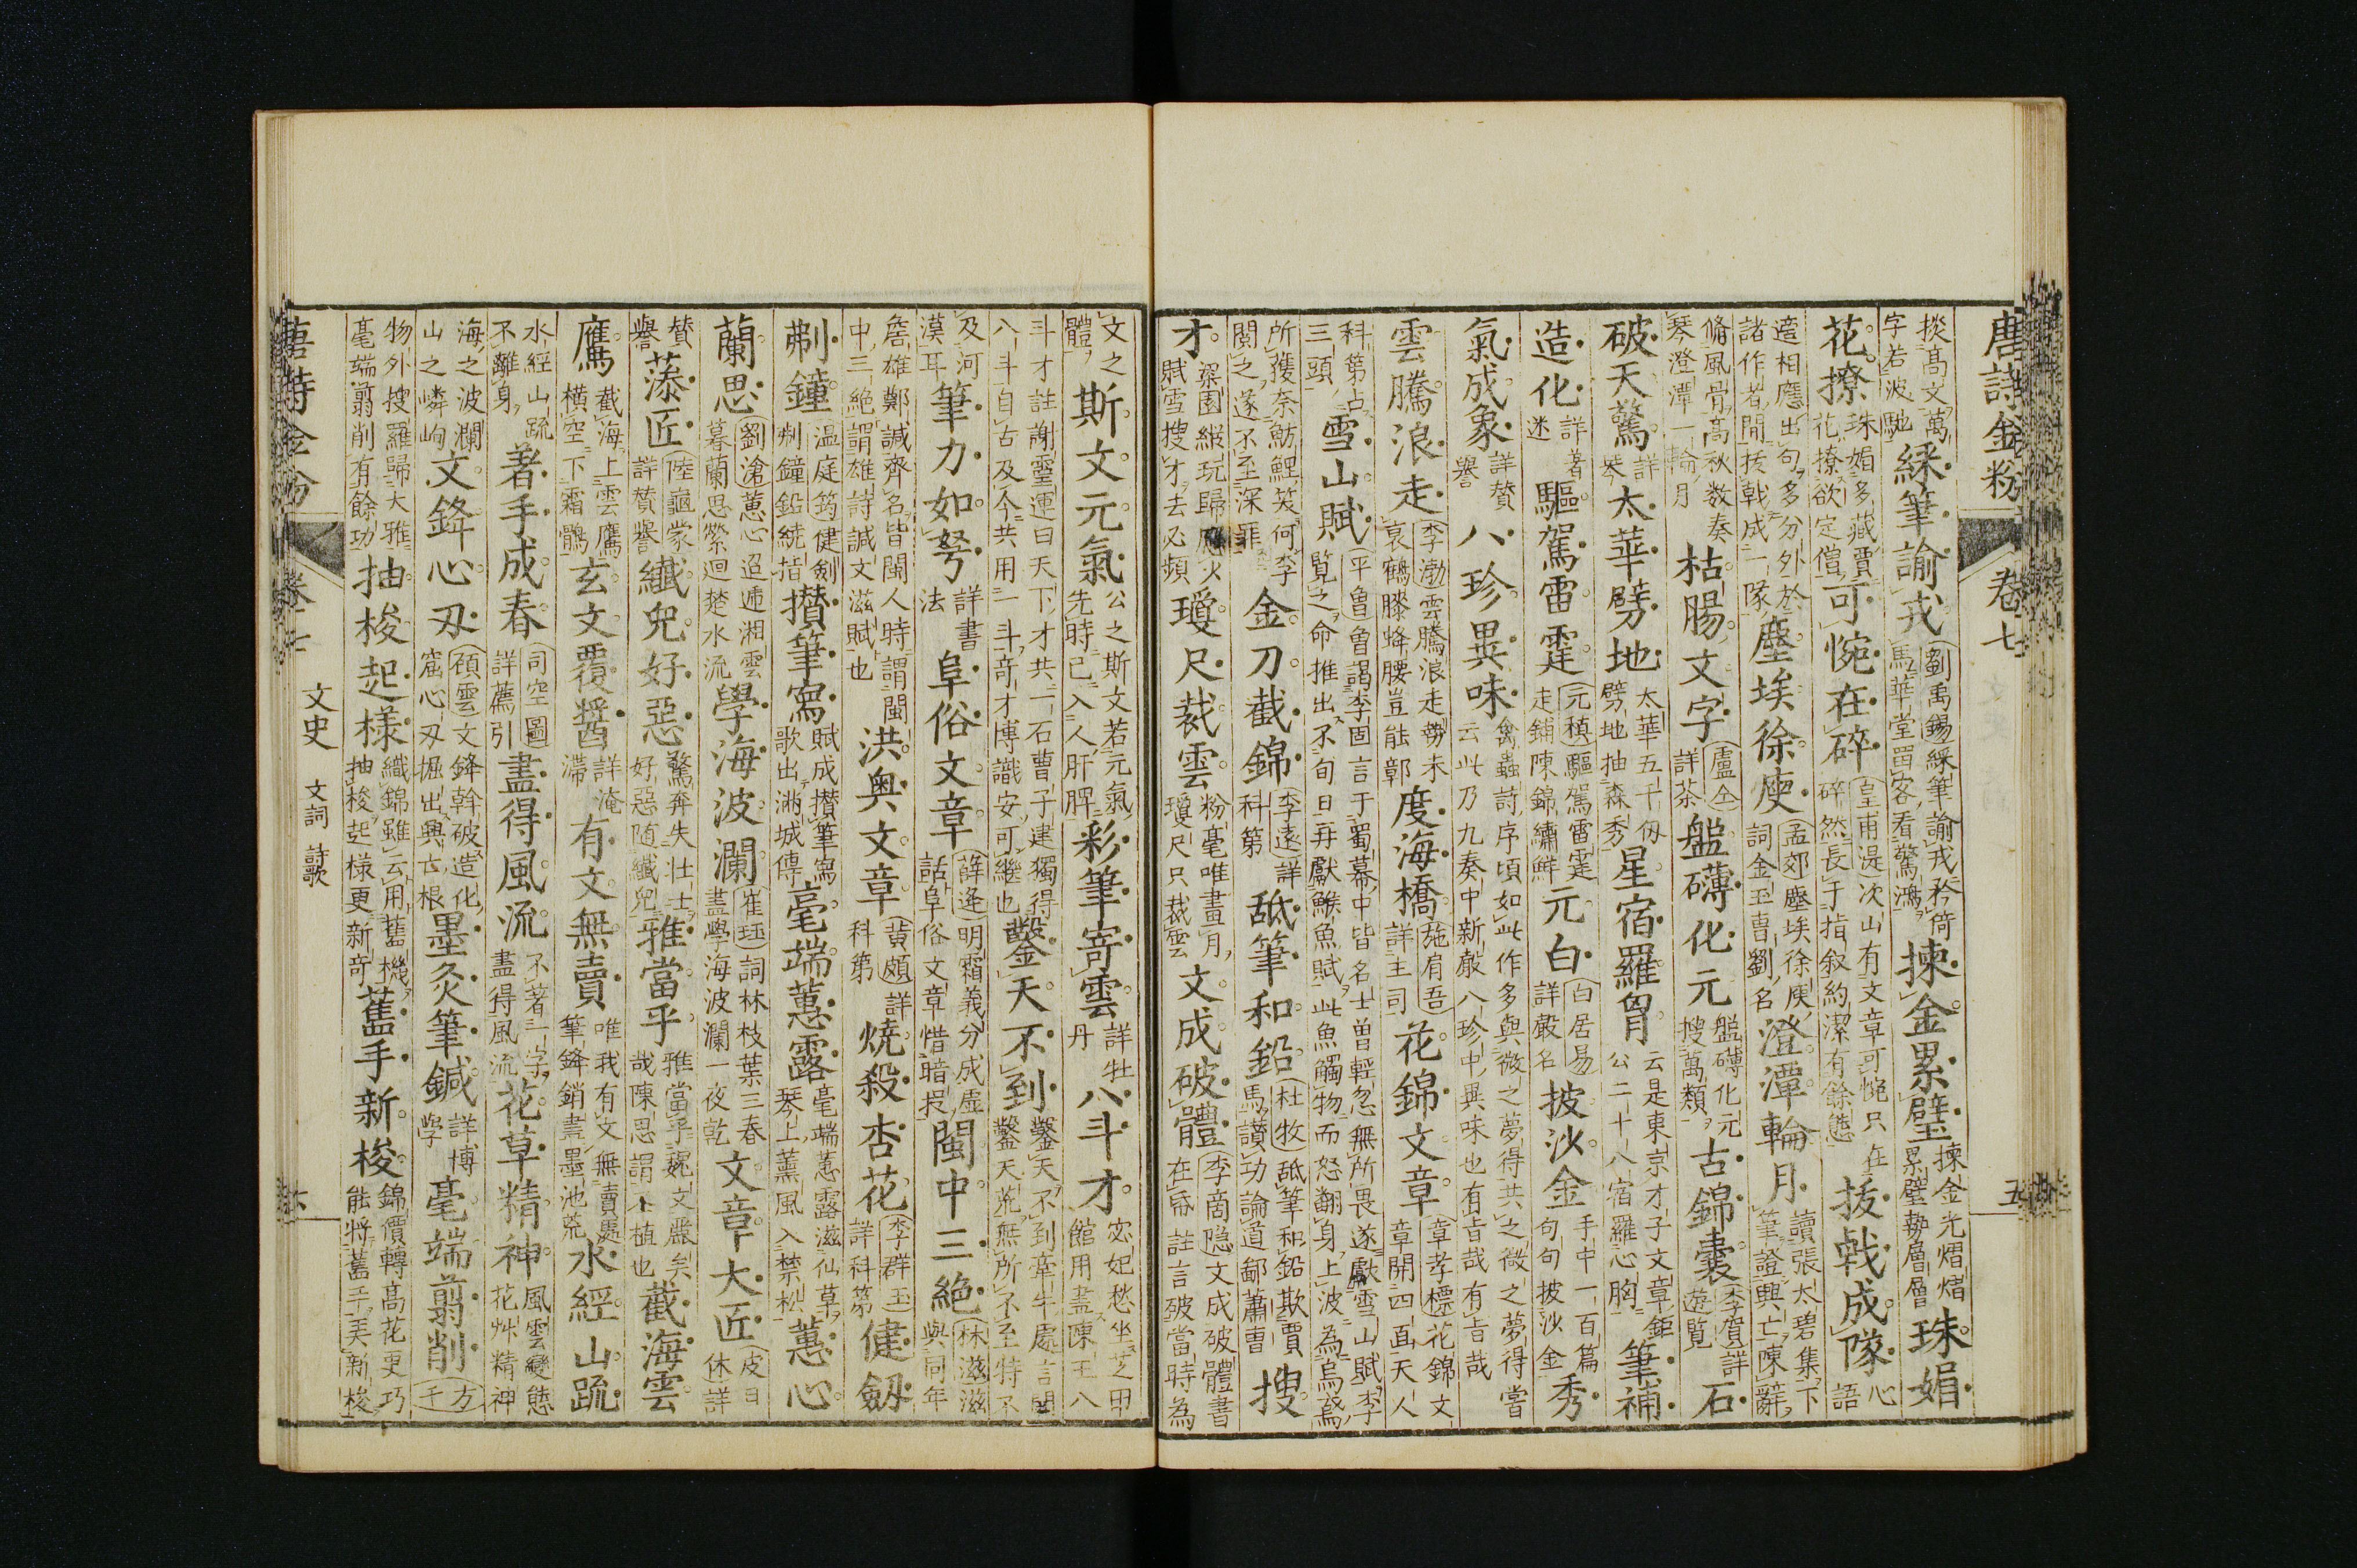 唐詩金粉 卷七 五
掞高文萬
字若波馳 綵筆諭戎 劉禹錫綵筆諭戎矜倚馬華堂留客看驚鴻 揀金累璧 揀金光熠熠累璧勢層層 珠媚
花撩 珠媚多藏賈花撩欲定僧 可惋在碎 皇甫湜次山有文章可惋只在碎然長于指叙約潔有餘態 拔戟成隊 心語
適相應出句多分外於諸作者間拔戟成一隊 塵埃徐庾 孟郊塵埃徐庾詞金玉曹劉名 澄潭輪月 讀張太碧集下筆證興亡陳辭
脩風骨高秋數奏琴澄潭一輪月 枯腸文字 盧仝詳茶 盤礴化元 盤礴化元搜萬類 古錦囊 李賀詳遊覧 石
破天驚 詳琴 太華劈地 太華五千仭劈地抽森秀 星宿羅胷 云是東京才子文章鉅公二十八宿羅心胸 筆補
造化 詳著迷 驅駕雷霆 元稹驅駕雷霆走鋪陳錦繡鮮 元白 白居易詳嚴名 披沙金 手中一百篇句句披沙金 秀
氣成象 詳賛譽 八珍異味 禽蟲詩序頃如此作多與微之夢得共之微之夢得嘗云此乃九奏中新嚴八珍中異味也有旨哉有旨哉
雲騰浪走 李渤雲騰浪走勢未衰鶴膝蜂腰豈能鄣 度海橋 施肩吾詳主司 花錦文章 章孝標花錦文章開四面天人
科第占三頭 雪山賦 平曾曾謁李固言于蜀幕中皆名士曽輕忽無所畏遂獻雪山賦李覧之命推出不旬日再獻鯸魚賦此魚觸物而怒翻身上波為烏鳶
所獲奈魴鯉笑何李閔之遂不至深罪 金刀截錦 李遠詳科第 舐筆和鉛 杜牧舐筆和鉛欺賈馬讃功論道鄙蕭曹 搜
才 梁園縱玩歸應少賦雪搜才去必頻 瓊尺裁雲 粉毫唯畫月瓊尺只裁雲 文成破體 李商隐文成破體書在帋註言破當時為
文之體 斯文元氣 公之斯文若元氣先時已入人肝脾 彩筆寄雲 詳牡丹 八斗才 宓妃愁坐芝田館用盡陳王八
斗才註謝靈運曰天下才共一石曹子建獨得八斗自古及今共用一斗竒才博識安可継也 鑿天不到 鑿天不到牽牛處言鑿天荒無所不至特不
及河漢耳 筆力如弩 詳書法 阜俗文章 薛逢明霜義分成虛話阜俗文章惜暗投 閩中三絶 林滋滋與同年
詹雄鄭諴齊名皆閩人時謂閩中三絶謂雄詩諴文滋賦也 洪奥文章 黄頗詳科第 焼殺杏花 李群玉詳科第 健劔
剸鐘 温庭筠健劔剸鐘鉛繞指 攅筆寫 賦成攅筆寫歌出滿城傳 毫端蕙露 毫端蕙露滋仙草琴上薫風入禁松 蕙心
蘭思 劉滄蕙心迢逓湘雲暮蘭思縈迴楚水流 學海波瀾 崔珏詞林枝葉三春盡學海波瀾一夜乾 文章大匠 皮日休詳
賛譽 蓚匠 陸龜蒙詳賛譽 纎兒好惡 驚奔失壮士好惡随纎兒 雅當乎 雅當乎魏文麗矣哉陳思謂丕植也 截海雲
鷹 截海上雲鷹横空下霜鶻 玄文覆醬 詳淹滞 有文無賣 唯我有文無賣處筆鋒銷盡墨池荒 水經山疏
水經山疏不離身 著手成春 司空圖詳薦引 盡得風流 不著一字盡得風流 花草精神 風雲變態花艸精神
海之波瀾山之嶙峋 文鋒心刃 顧雲文鋒斡破造化窟心刃掘出興亡根 墨灸筆鍼 詳博學 毫端翦削 方干
物外搜羅歸大雅毫端翦削有餘功 抽梭起様 織錦雖云用舊機抽梭起様更新竒 舊手新梭 錦價轉高花更巧能将舊手美新梭
唐詩金粉 卷七 文史 文詞 詩歌 六